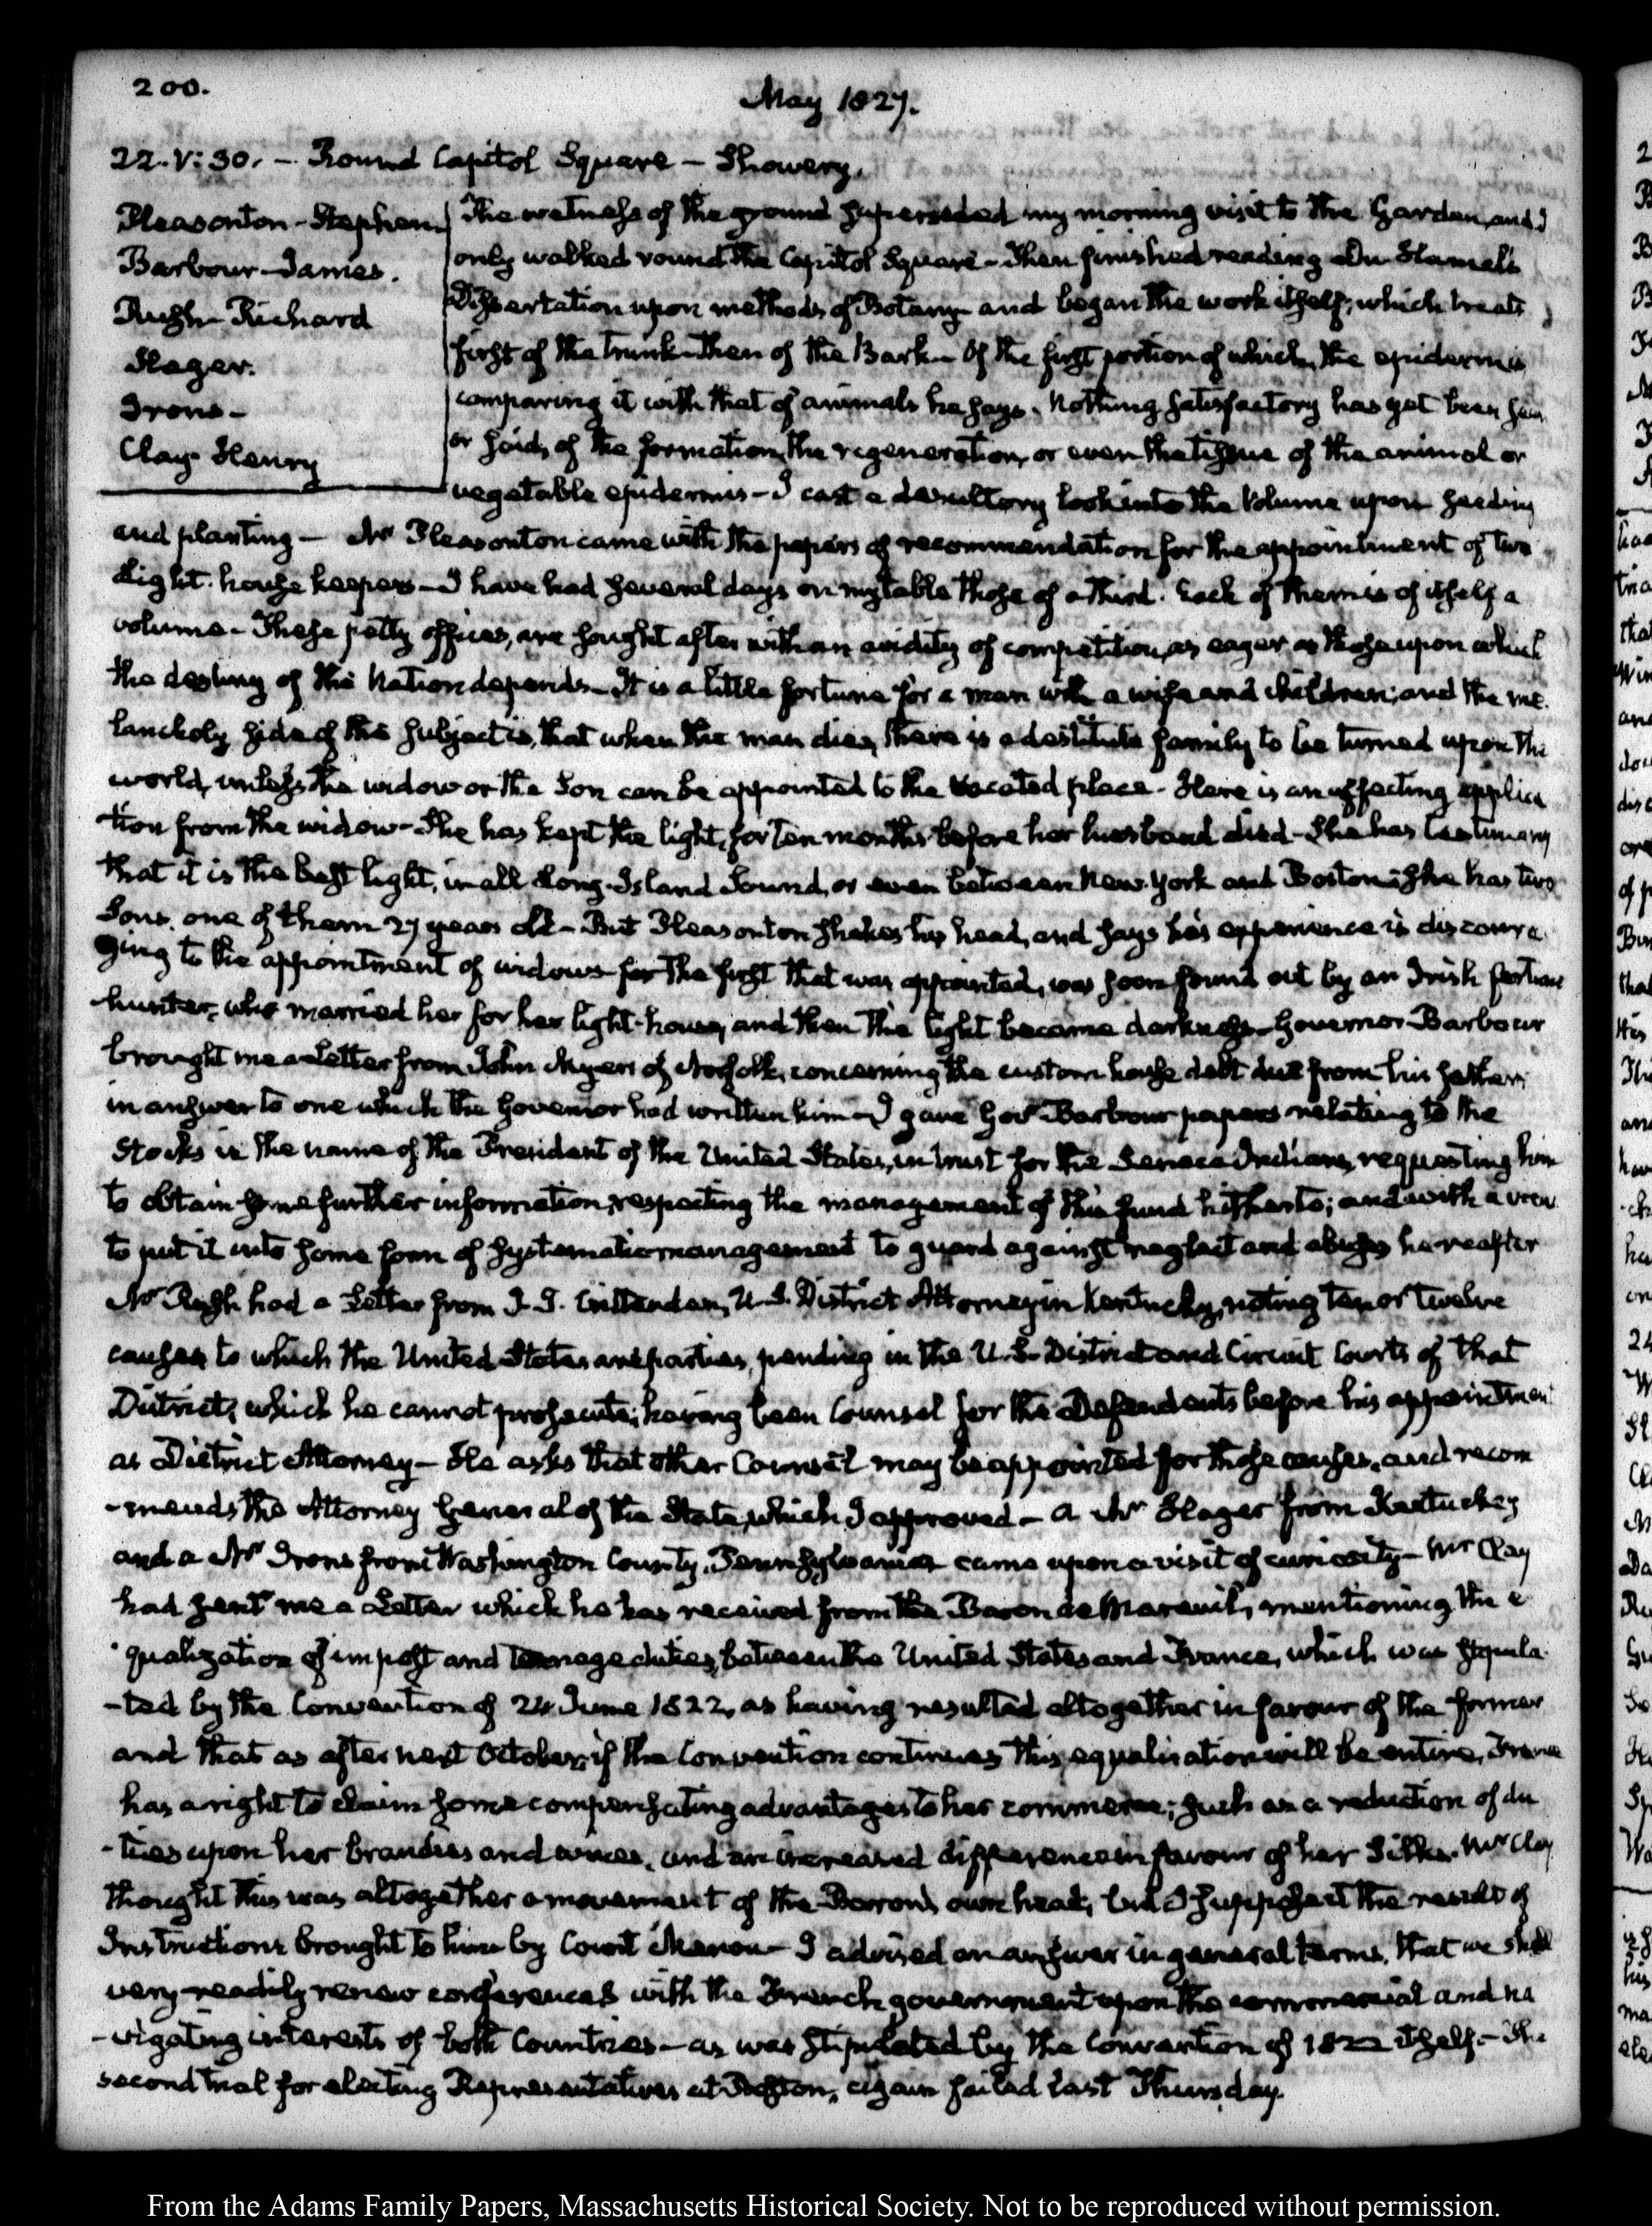 200.
May 1827.
22. V: 30. – Round Capitol Square – Showery.
Pleasonton – Stephen
Barbour – James.
Rush – Richard
Slager.
Irons –
Clay – Henry
The wetness of the ground superseded my morning visit to the Garden, and I
only walked round the Capitol Square – Then finished reading Du Hamel's
Dissertation upon methods of Botany – and began the work itself, which treats
first of the Trunk – then of the Bark – Of the first portion of which, the epidermis,
comparing it with that of animals he says, nothing satisfactory has yet been seen
or said, of the formation, the regeneration, or even the tissue of the animal or
vegetable epidermis – I cast a desultory look into the Volume upon seeding
and planting – Mr Pleasonton came with the papers of recommendation for the appointment of two
Light-house keepers – I have had several days on my table those of a third. Each of them is of itself a
volume – These petty offices, are sought after with an avidity of competition, as eager as those upon which
the destiny of the Nation depends – It is a little fortune for a man with a wife and children; and the me-
lancholy side of the subject is, that when the man dies, there is a destitute family to be turned upon the
world, unless the widow or the Son can be appointed to the vacated place – Here is an affecting applica
tion from the widow – She has kept the light, for ten months before her husband died – She has testimony
that it is the best light, in all Long-Island Sound, or even between New-York and Boston; she has two
Sons, one of them 27 years old – But Pleasonton shakes his head, and says his experience is discoura
ging to the appointment of widows – for the first that was appointed, was soon found out by an Irish fortune
hunter, who married her for her light-house, and then the light became darkness – Governor Barbour
brought me a Letter from John Myers of Norfolk, concerning the custom house debt due from his father;
in answer to one which the Governor had written him – I gave Govr Barbour papers relating to the
Stocks in the name of the President of the United States, in trust for the Seneca Indians, requesting him
to obtain some further information, respecting the management of this fund hitherto; and with a view
to put it into some form of systematic management to guard against neglect and abuses hereafter
Mr Rush had a Letter from J. J. Crittenden, U.S. District Attorney in Kentucky, noting ten or twelve
causes to which the United States are parties, pending in the U.S. District and Circuit Courts of that
District, which he cannot prosecute; having been Counsel for the Defendants before his appointment
as District Attorney – He asks that other Counsel may be appointed for those causes, and recom
-mends the Attorney General of the State, which I approved – A Mr Slager from Kentuckey
and a Mr Irons from Washington County, Pennsylvania came upon a visit of curiosity – Mr Clay
had sent me a Letter which he has received from the Baron de Mareuil, mentioning the e
-qualization of impost and tonnage duties, between the United States and France, which was stipula
-ted by the Convention of 24 June 1822, as having resulted altogether in favour of the former
and that as after next October, if the Convention continues this equalization will be entire, France
has a right to claim some compensating advantages to her commerce; such as a reduction of du
-ties upon her brandies and wines, and an increased difference in favour of her Silks. Mr Clay
thought this was altogether a movement of the Baron's own head; but I suppose it the result of
Instructions brought to him by Count Menou – I advised an answer in general terms, that we shall
very readily renew conferences with the French government upon the commercial and na
-vigating interests of both Countries – as was stipulated by the Convention of 1822 itself – The
second trial for electing Representatives at Boston, again failed last Thursday.
From the Adams Family Papers, Massachusetts Historical Society. Not to be reproduced without permission.